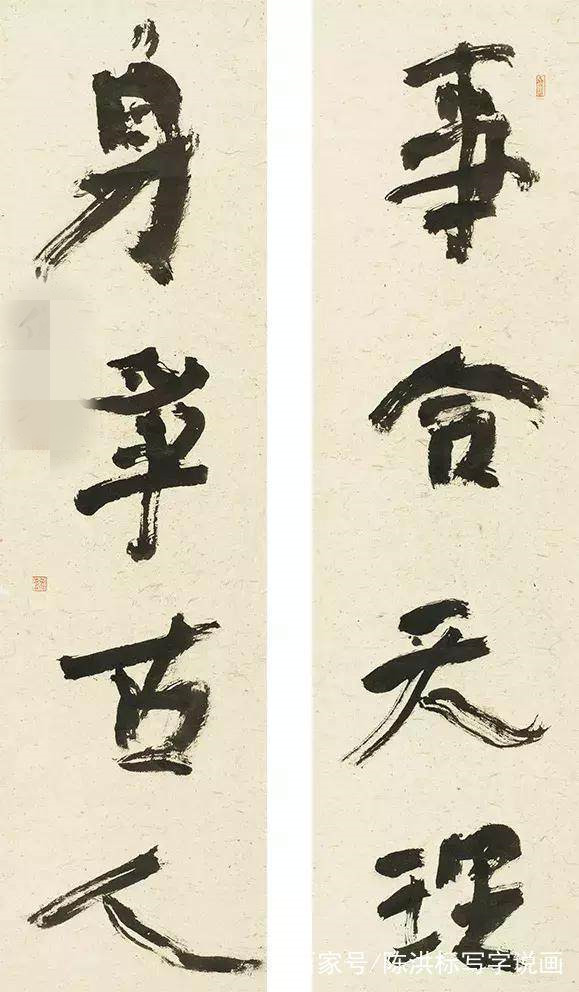 事合天理
身争古人
百家号/陈洪标写字说画